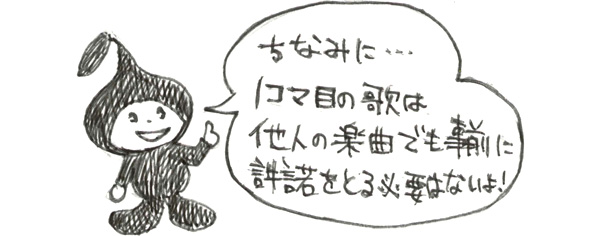 ちなみに…
1コマ目の歌は
他人の楽曲でも事前に
許諾をとる必要はないよ!